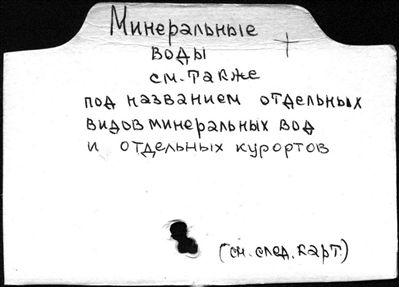 Минеральные
воды
см. также
под названием отдельных
видов минеральных вод
и отдельных курортов
(см. след. карт.)